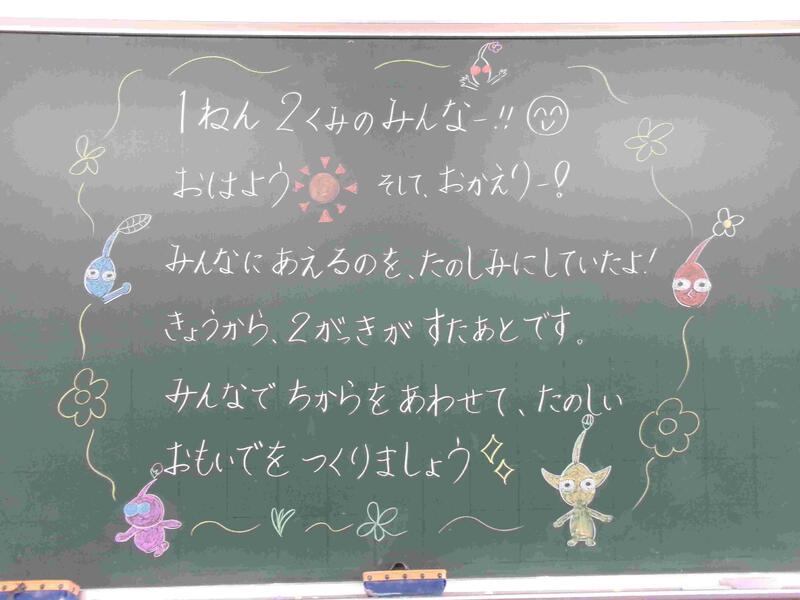 1ねん 2くみのみんなー!!
おはよう そして、おかえりー!
みんなにあえるのを、たのしみにしていたよ!
きょうから、2がっきがすたあとです。
みんなでちからをあわせて、たのしい
おもいでをつくりましょう